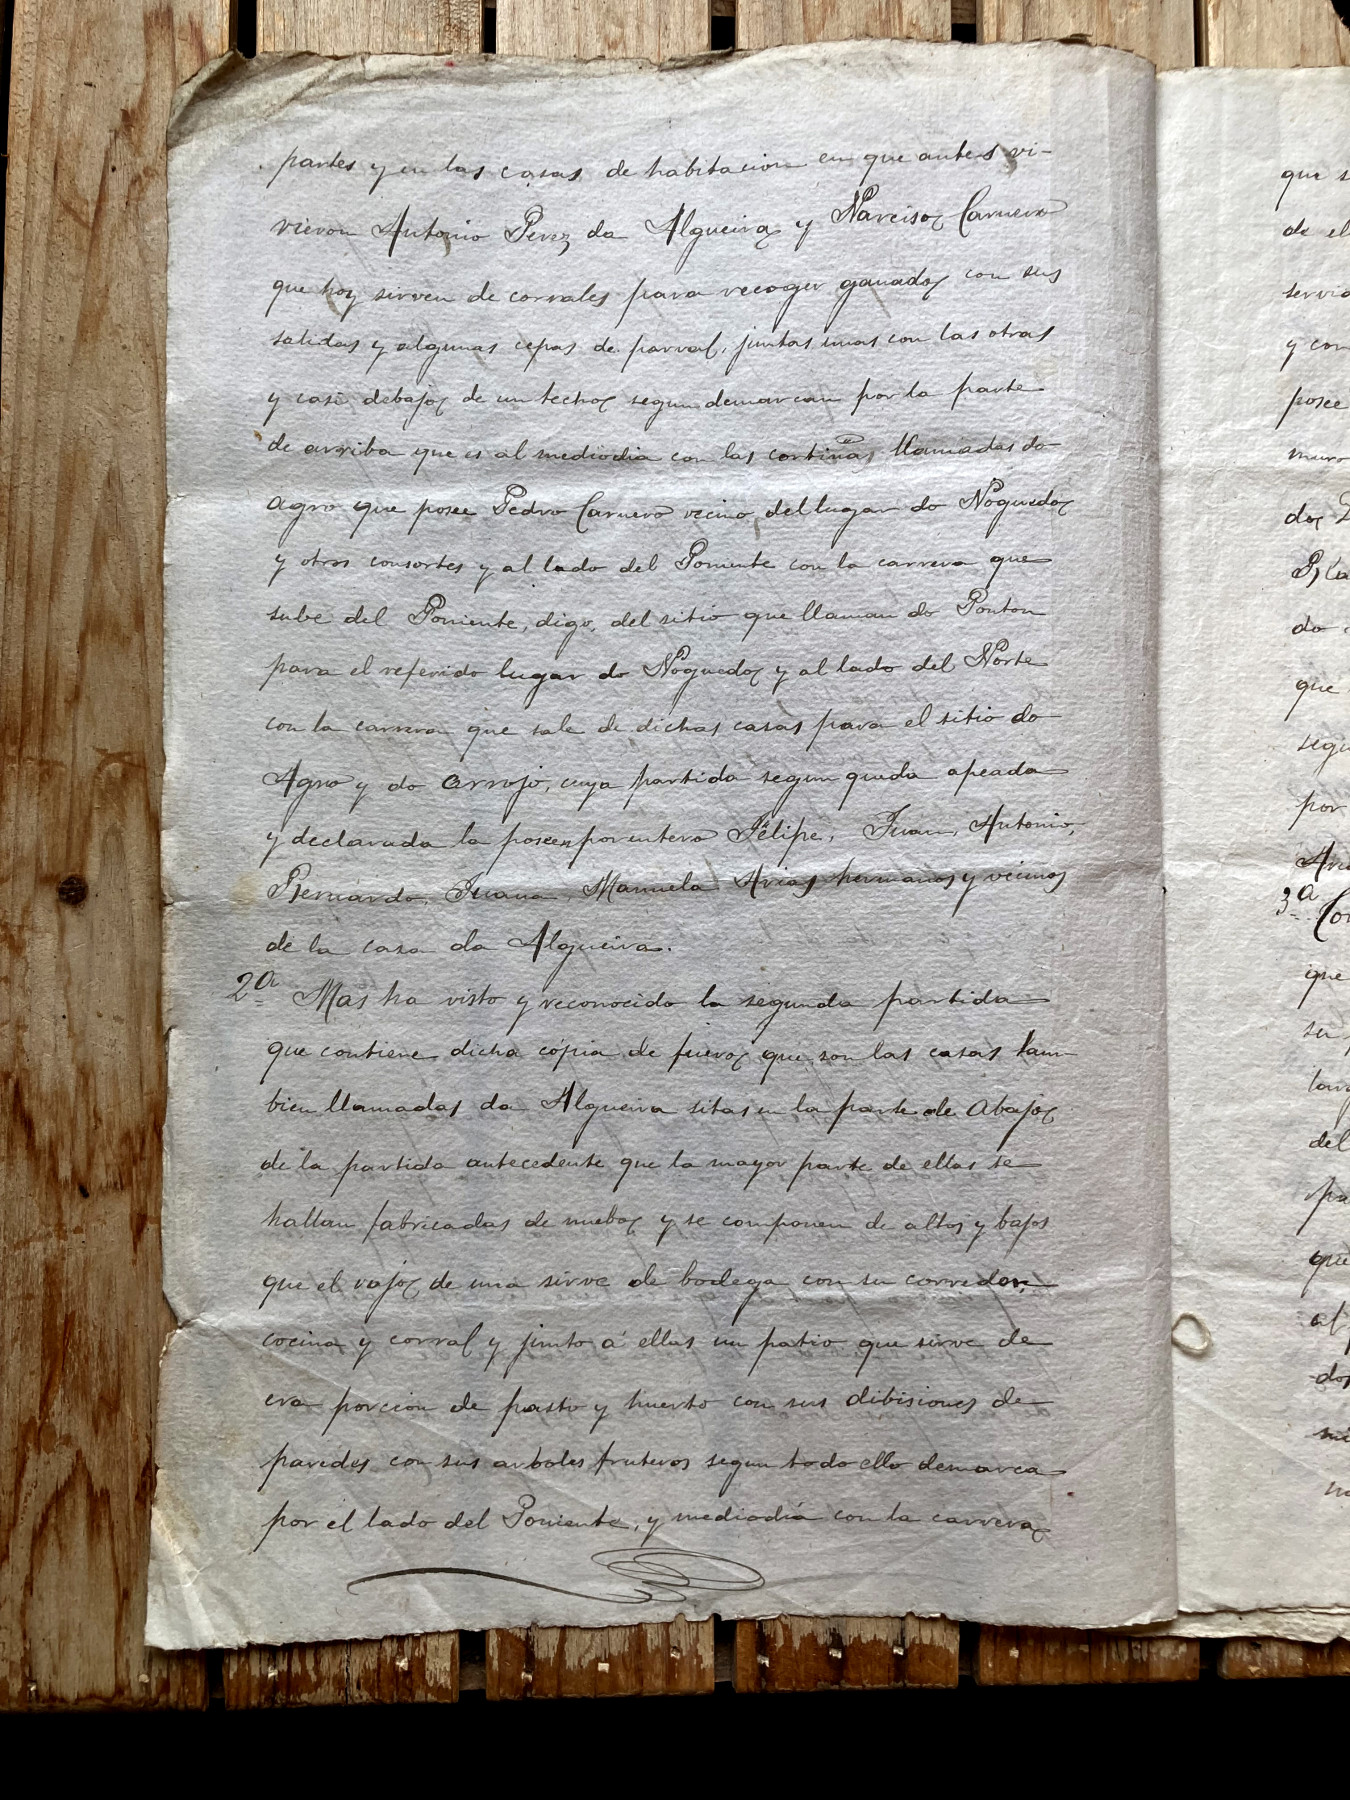 partes y en las casas de habitacion en que antes vi-
vieron Antonio Perez da Algueira y Narciso Carnero
que hoy sirven de corrales para recoger ganado con sus
salidas y algunas cepas de parral, juntas unas con las otras
y casi debajo de un techo segun demarcan por la parte
de arriba que es al mediodia con las cortiñas llamadas do
agro que posee Pedro Carnero vecino del lugar do Noguedo
y otros consortes y al lado del Poniente con la carrera que
sube del Poniente, digo, del sitio que llaman do Ponton
para el referido lugar do Noguedo y al lado del Norte
con la carrera que sale de dichas casas para el sitio do
Agro y do Arrojo, cuya partida segun queda apeada
y declarada la poseen por entero Felipe, Juan, Antonio,
Bernardo, Juana, Manuela Arias hermanos y vecinos
de la casa da Algueira.
2a Mas ha visto y reconocido la segunda partida
que contiene dicha cópia de fuero que son las casas tam-
bien llamadas da Algueira sitas en la parte de Abajo
de la partida antecedente que la mayor parte de ellas se
hallan fabricadas de nuebo y se componen de altos y bajos
que el vajo de una sirve de bodega con su corredor,
cocina y corral y junto á ellas un patio que sirve de
era porcion de pasto y huerto con sus dibisiones de
paredes con sus arboles fruteros segun todo ello demarca
por el lado del Poniente, y mediodia con la carrera
que s
de el
servi
y con
posee
muro
do
do
que
segu
por
3a Con
que
su
del
pa
que
al
do